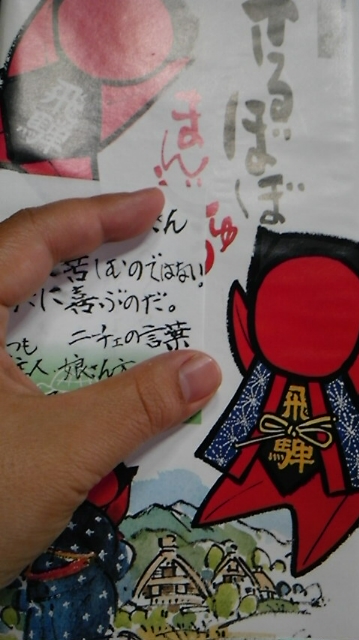 飛騨
さるぼぼ
まん
ゅ
さん
苦しむのではない
に喜ぶのだ。
つも ニーチェの言葉
人 娘さん
飛騨